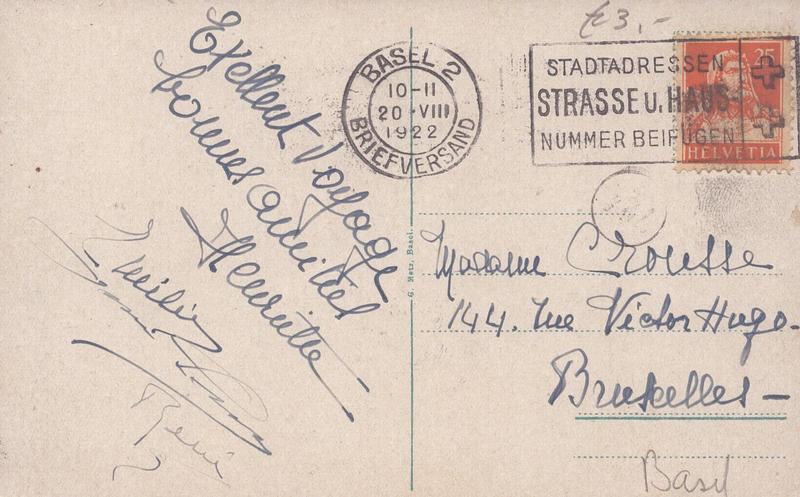 £3,-
BASEL 2
10-11
20·VIII
1922
BRIEFVERSAND
STADTADRESSEN
STRASSE u. HAUS-
NUMMER BEIFÜGEN
25
HELVETIA
Exellent Voyage
bonnes amitiés
Henriette
Emilie
René
G. Metz, Basel.
Madame Crousse
144. rue Victor Hugo-
Bruxelles-
Basil